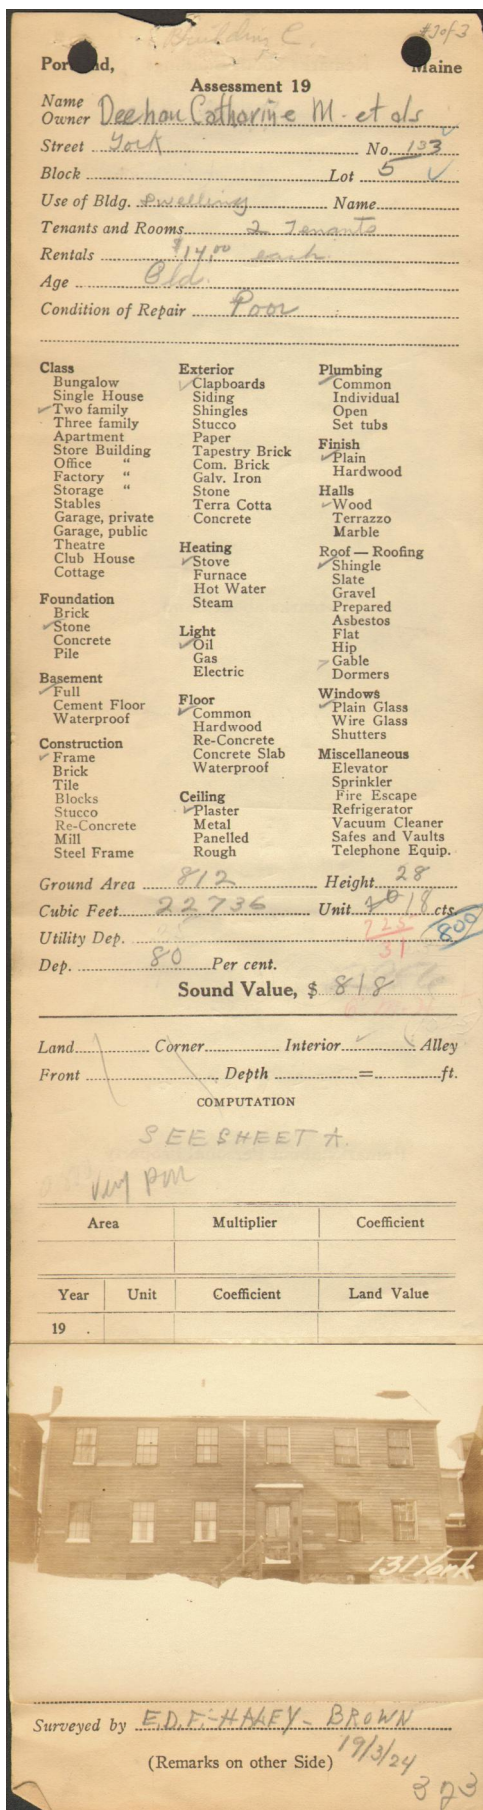 Building C.
#3 of 3
Portland, Maine
Assessment 19
Name
Owner Deehan Catharine M. et als
Street York No. 133
Block Lot 5
Use of Bldg. Dwelling Name
Tenants and Rooms 2 Tenants
Rentals $14.00 each
Age Old.
Condition of Repair Poor
Class
Bungalow
Single House
Two family
Three family
Apartment
Store Building
Office "
Factory "
Storage "
Stables
Garage, private
Garage, public
Theatre
Club House
Cottage
Foundation
Brick
Stone
Concrete
Pile
Basement
Full
Cement Floor
Waterproof
Construction
Frame
Brick
Tile
Blocks
Stucco
Re-Concrete
Mill
Steel Frame
Exterior
Clapboards
Siding
Shingles
Stucco
Paper
Tapestry Brick
Com. Brick
Galv. Iron
Stone
Terra Cotta
Concrete
Heating
Stove
Furnace
Hot Water
Steam
Light
Oil
Gas
Electric
Floor
Common
Hardwood
Re-Concrete
Concrete Slab
Waterproof
Ceiling
Plaster
Metal
Panelled
Rough
Plumbing
Common
Individual
Open
Set tubs
Finish
Plain
Hardwood
Halls
Wood
Terrazzo
Marble
Roof — Roofing
Shingle
Slate
Gravel
Prepared
Asbestos
Flat
Hip
Gable
Dormers
Windows
Plain Glass
Wire Glass
Shutters
Miscellaneous
Elevator
Sprinkler
Fire Escape
Refrigerator
Vacuum Cleaner
Safes and Vaults
Telephone Equip.
Ground Area 812 Height 28
Cubic Feet 22736 Unit 18 cts.
Utility Dep. 225 800
31
Dep. 80 Per cent.
Sound Value, $ 818
Land Corner Interior Alley
Front Depth = ft.
COMPUTATION
SEE SHEET A.
Very poor
Area Multiplier Coefficient
Year Unit Coefficient Land Value
19 .
131 York
Surveyed by E.D.F. - HALEY - BROWN
(Remarks on other Side) 19/3/24
323